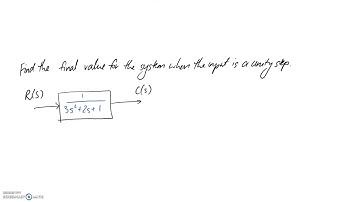 Find the final value for the system when the input is a unity step.
R(s)
C(s)
1
3s²+2s+1